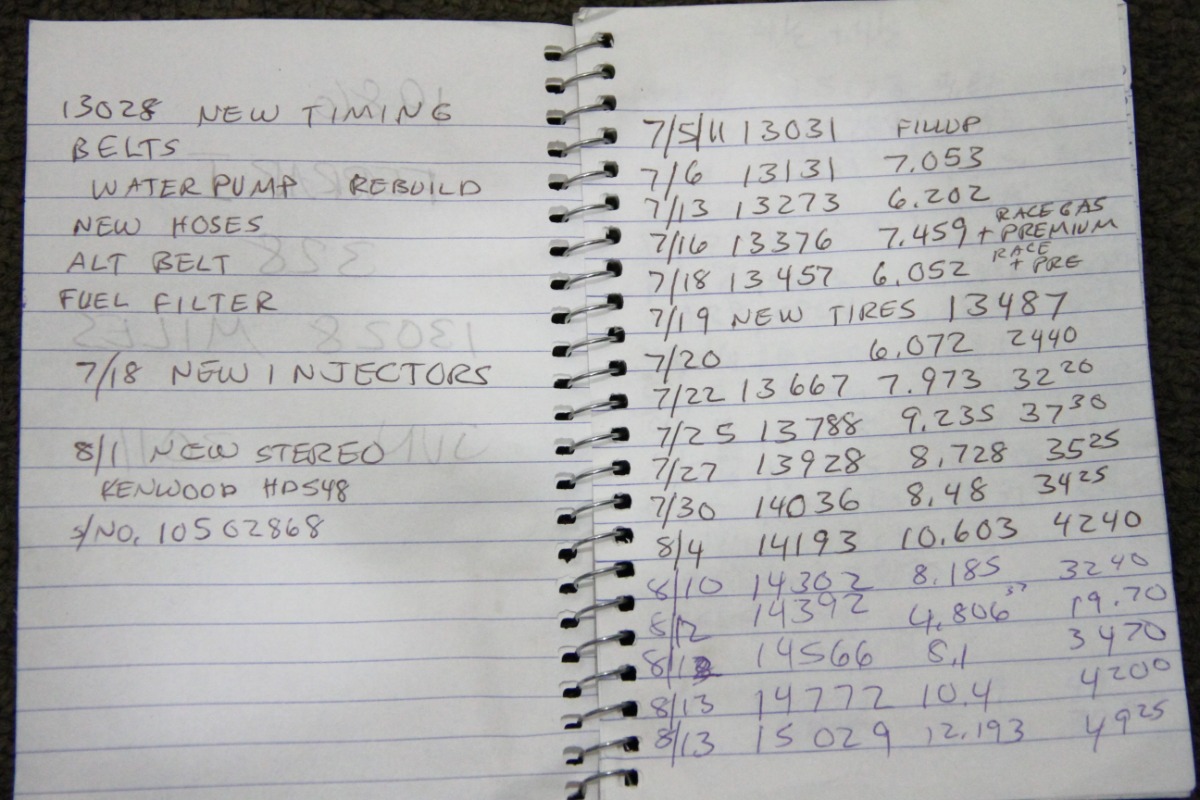 13028 NEW TIMING
BELTS
WATER PUMP REBUILD
NEW HOSES
ALT BELT
FUEL FILTER
7/18 NEW INJECTORS
8/1 NEW STEREO
KENWOOD HD548
S/NO. 10502868
7/5/11 13031 FILLUP
7/6 13131 7.053
7/13 13273 6.202
7/16 13376 7.459 + RACE GAS PREMIUM
7/18 13457 6.052 RACE + PRE
7/19 NEW TIRES 13487
7/20 6.072 2440
7/22 13667 7.973 3220
7/25 13788 9.235 3730
7/27 13928 8.728 3525
7/30 14036 8.48 3425
8/4 14193 10.603 4240
8/10 14302 8.185 3240
8/12 14392 4.806 19.70
8/12 14566 8.1 3470
8/13 14772 10.4 4200
8/13 15029 12.193 4925